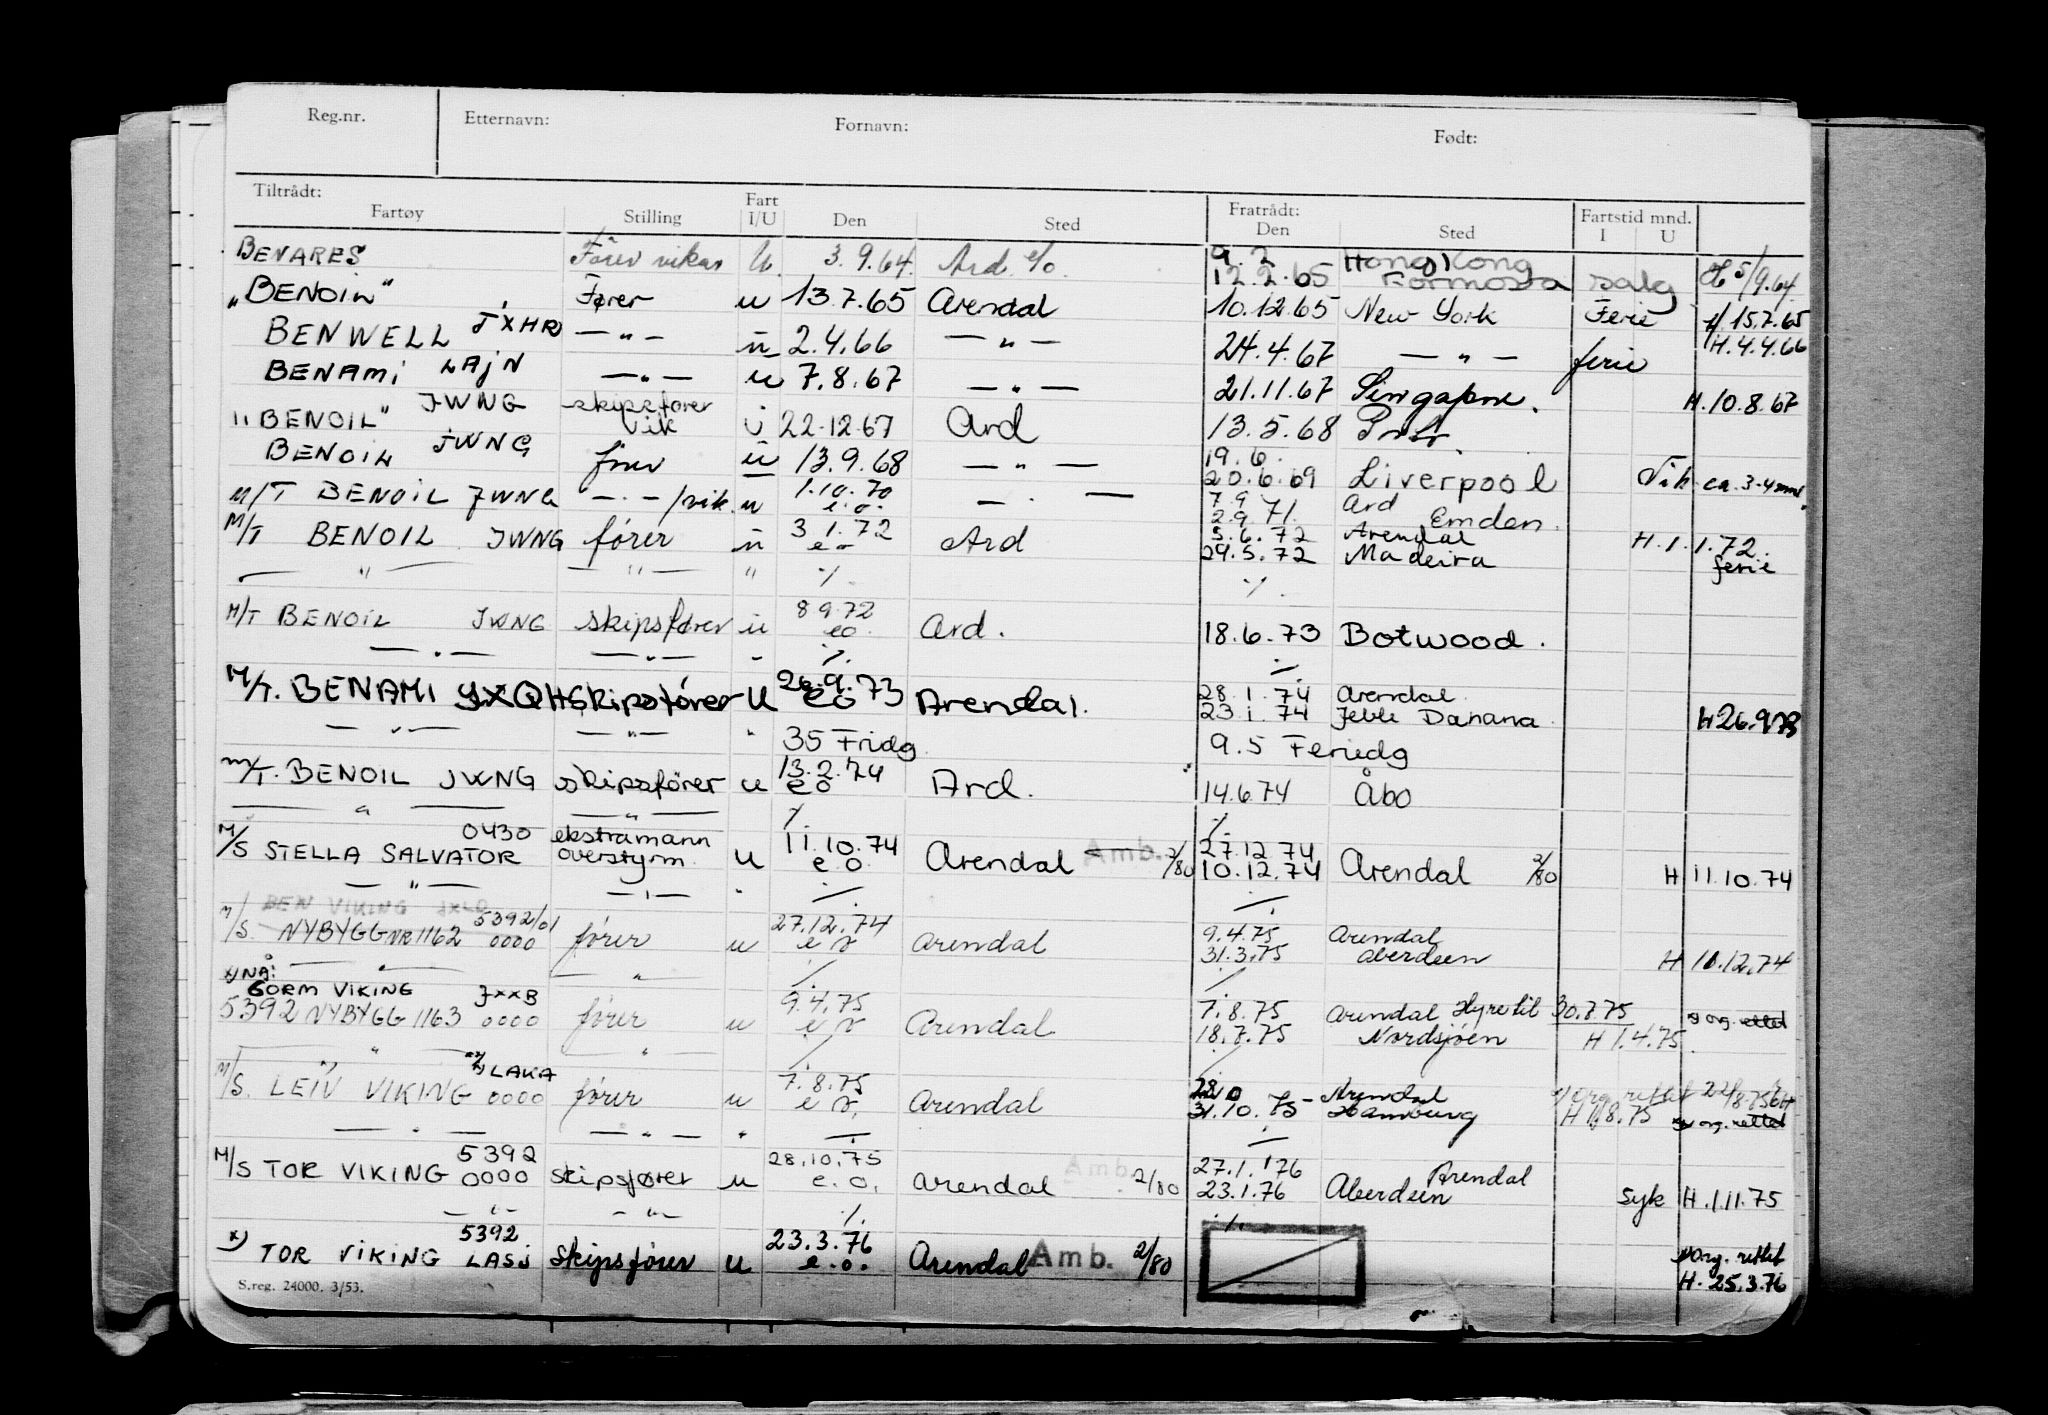 Reg.nr. Etternavn: Fornavn: Født:
Tiltrådt: Fratrådt:
Fartøy Stilling Fart I/U Den Sted Den Sted Fartstid mnd. I U
BENARES Förer vikar U. 3.9.64. Ard e/o. 9.2 Hong Kong
12.2.65 Formosa salg H 5/9.64.
"BENOIL" Fører u 13.7.65 Arendal 10.12.65 New York Ferie H. 15.7.65
BENWELL JXHR — " — u 2.4.66 — " — 24.4.67 — " — ferie H. 4.4.66
BENAMI LAJN — " — u 7.8.67 — " — 21.11.67 Singapore. H. 10.8.67
"BENOIL" JWNG skipsfører vik u 22.12.67 Ard 13.5.68
BENOIL JWNG förer u 13.9.68 — " — 19.6.
20.6.69 Liverpool Vik ca. 3-4 mnd
M/T BENOIL JWNG — " — /vik. u 1.10.70 e.o. — " — 7.9 Ard
2.9.71. Emden.
M/T BENOIL JWNG fører u 3.1.72 eo Ard 5.6.72 Arendal H. 1.1.72.
29.5.72 Madeira ferie
— " — — " — " ·/. ·/.
M/T BENOIL JWNG skipsfører u 8.9.72 eo. Ard. 18.6.73 Botwood.
— " — — " — " ·/. ·/.
M/T. BENAMI JXQH skipsfører U 26.9.73 eo Arendal. 28.1.74 Arendal.
23.1.74 Jebll Danana. H 26.9.73
— " — — " — " 35 Fridg. 9.5 Feriedg
M/T. BENOIL JWNG skipsfører u 13.2.74 eo Ard. 14.6.74 Åbo
— " — — " — ·/. ·/.
M/S STELLA SALVATOR 0430 ekstramann overstyrm. u 11.10.74 e.o. Arendal Amb. 2/80 27.12.74
10.12.74 Arendal 2/80 H 11.10.74
— " — — " — " ·/. ·/.
BEN VIKING JXLD
M/S. NYBYGG NR 1162 5392/01 0000 fører u 27.12.74 e o Arendal 9.4.75 Arendal
31.3.75 Aberdeen H 10.12.74
x) NÅ: — " — — " — ·/. ·/.
GORM VIKING JXXB
5392 NYBYGG 1163 0000 fører u 9.4.75 e o Arendal 7.8.75 Arendal Hyre til 30.7.75
18.7.75 Nordsjøen H 1.4.75. x) org. rettet
— " — — " — ·/. ·/.
M/S. LEIV VIKING x) LAKA 0000 fører u 7.8.75 e o. Arendal 28.10 Arendal x) Org rettet
31.10.75 Hamburg H 1.8.75 x) org. rettet
— " — — " — " ·/. ·/.
M/S TOR VIKING 5392 0000 skipsfører u 28.10.75 e.o. Arendal Amb. 2/80 27.1.76 Arendal
23.1.76 Aberdeen syk H. 1.11.75
— " — — " — ·/. ·/.
x) TOR VIKING 5392 LASJ skipsfører u 23.3.76 e.o. Arendal Amb. 2/80 x) Org. rettet
H. 25.3.76
S.reg. 24000. 3/53.